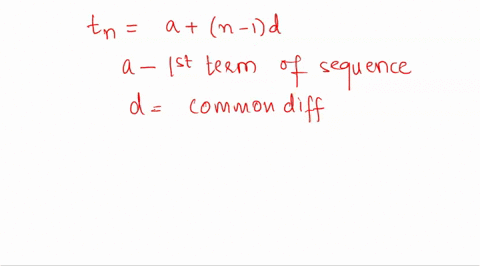 tn = a + (n-1)d
a - 1st term of sequence
d = common diff